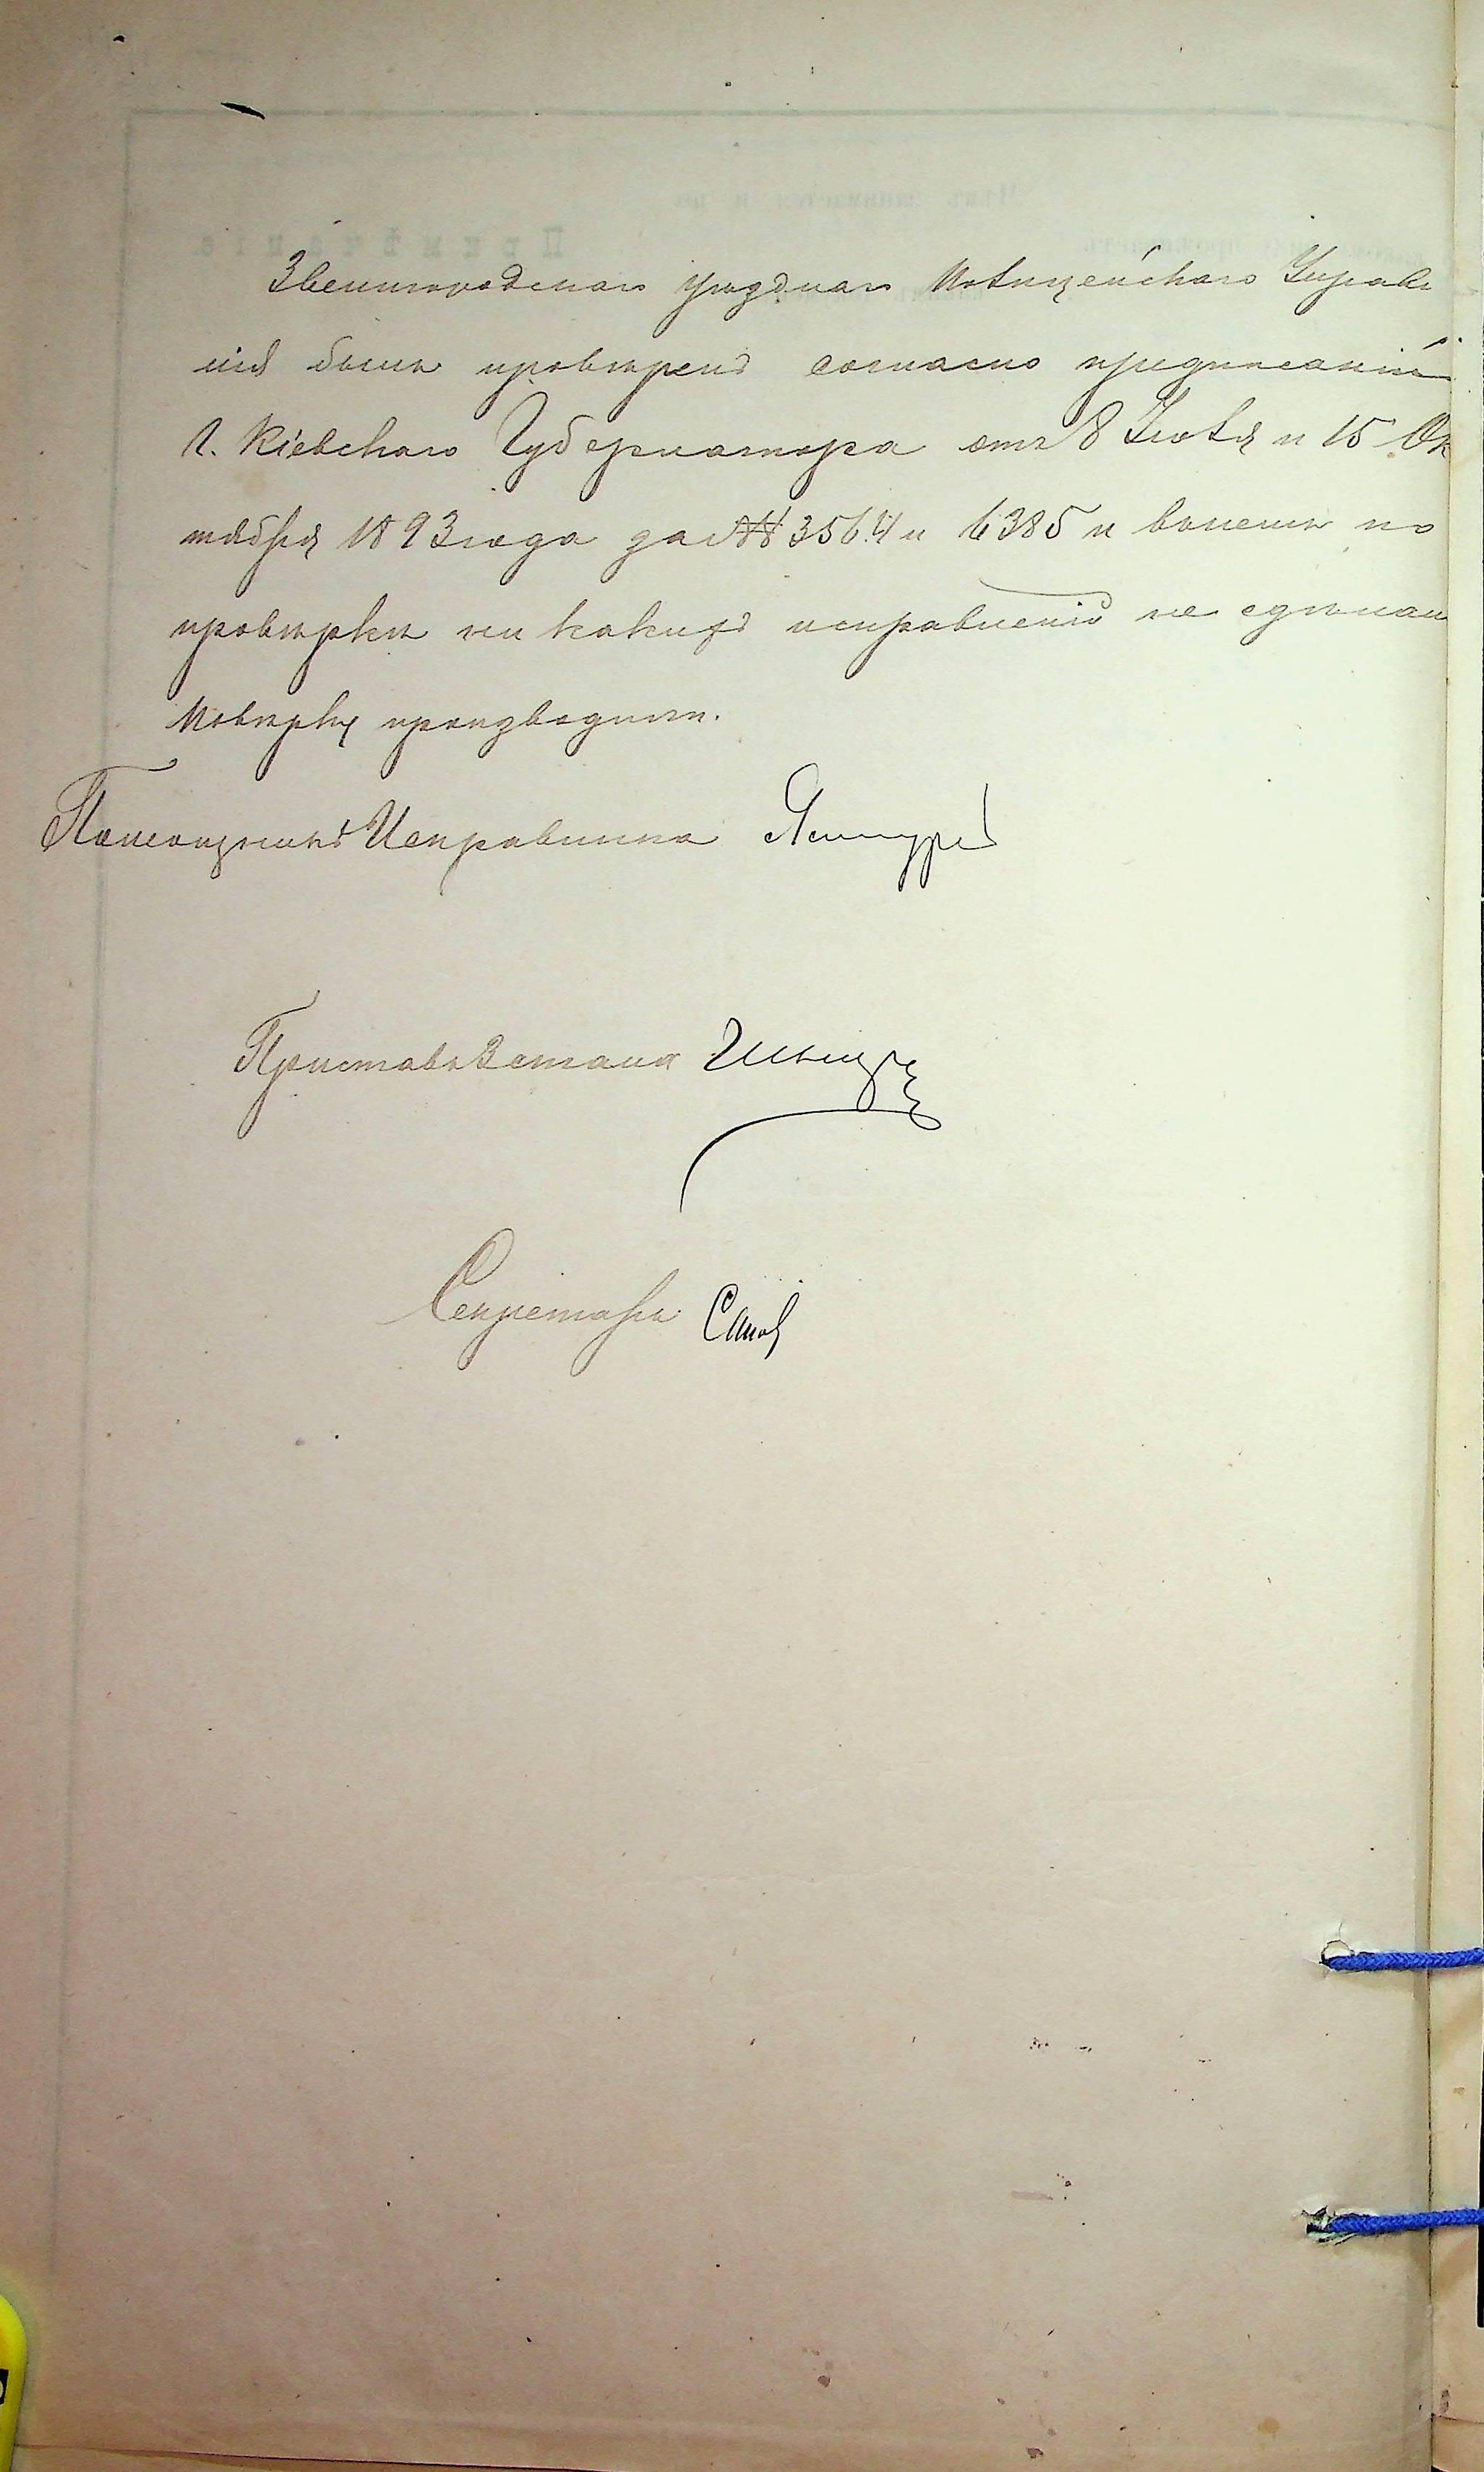 Звенигородскаго уѣзднаго Полицейскаго Управле
нія былъ провѣренъ согласно предписаній
Г. Кіевскаго Губернатора отъ 8 Іюля и 15 Ок
тября 1893 года за №№ 3564 и 6385 и въ чемъ по
провѣркѣ ни какихъ исправленій не сдѣлан
Повѣрку производили:
Помощникъ Исправника
Приставъ 2 стана
Секретарь